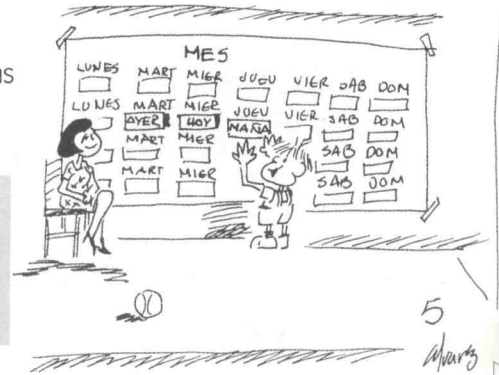 as
MES
LUNES MART MIER JUEV VIER SAB DOM
LUNES MART MIER JUEV VIER SAB DOM
AYER HOY NAÑA
MART MIER SAB DOM
MART MIER SAB DOM
5
alvarez